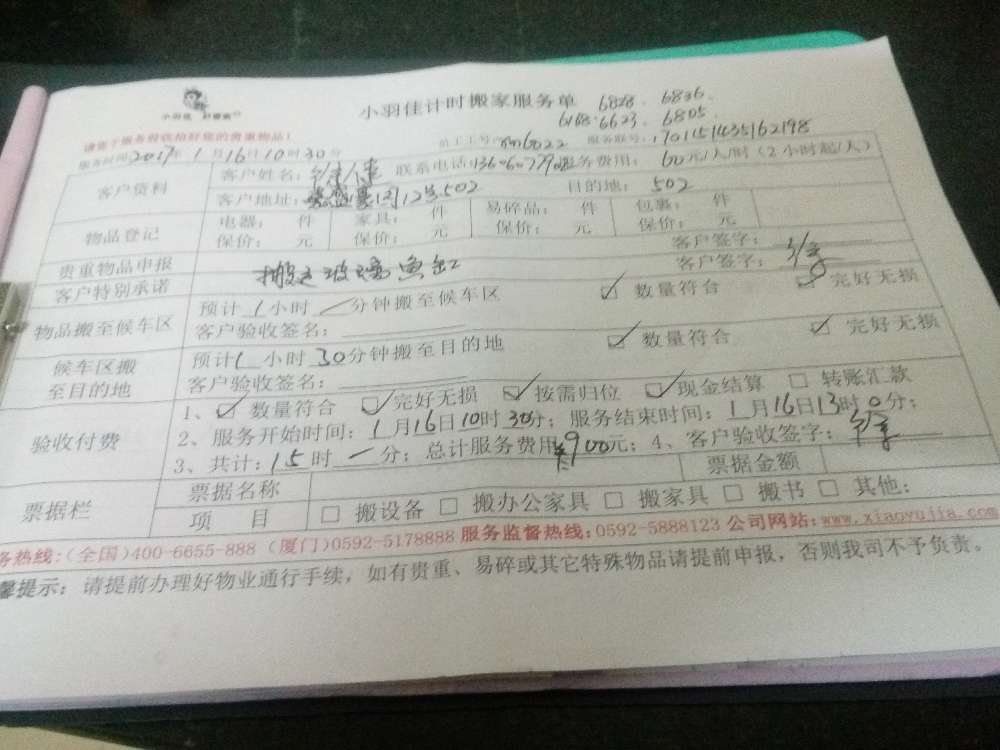 小羽佳 好管家
小羽佳计时搬家服务单 6828. 6836.
6168. 6623. 6805.
请您于服务前收拾好您的贵重物品!
员工工号: 服务联号: 1701151435162198
服务时间2017年1月16日10时30分
客户资料 客户姓名: 联系电话 服务费用: 60元/人/时(2小时起/人)
客户地址: 12号502 目的地: 502
物品登记 电器: 件 家具: 件 易碎品: 件 包裹: 件
保价: 元 保价: 元 保价: 元 保价: 元
贵重物品申报 客户签字:
客户特别承诺 搬运玻璃鱼缸 客户签字:
物品搬至候车区 预计1小时一分钟搬至候车区 ☑ 数量符合 ☑ 完好无损
客户验收签名:
候车区搬至目的地 预计1小时30分钟搬至目的地 ☑ 数量符合 ☑ 完好无损
客户验收签名:
验收付费 1、☑ 数量符合 ☑ 完好无损 ☑ 按需归位 ☑ 现金结算 □ 转账汇款
2、服务开始时间: 1月16日10时30分; 服务结束时间: 1月16日13时0分;
3、共计: 15时一分; 总计服务费用¥900元; 4、客户验收签字:
票据栏 票据名称 票据金额
项 目 □ 搬设备 □ 搬办公家具 □ 搬家具 □ 搬书 □ 其他:
务热线:(全国)400-6655-888 (厦门)0592-5178888 服务监督热线:0592-5888123 公司网站:www.xiaoyujia.com
馨提示: 请提前办理好物业通行手续，如有贵重、易碎或其它特殊物品请提前申报，否则我司不予负责。